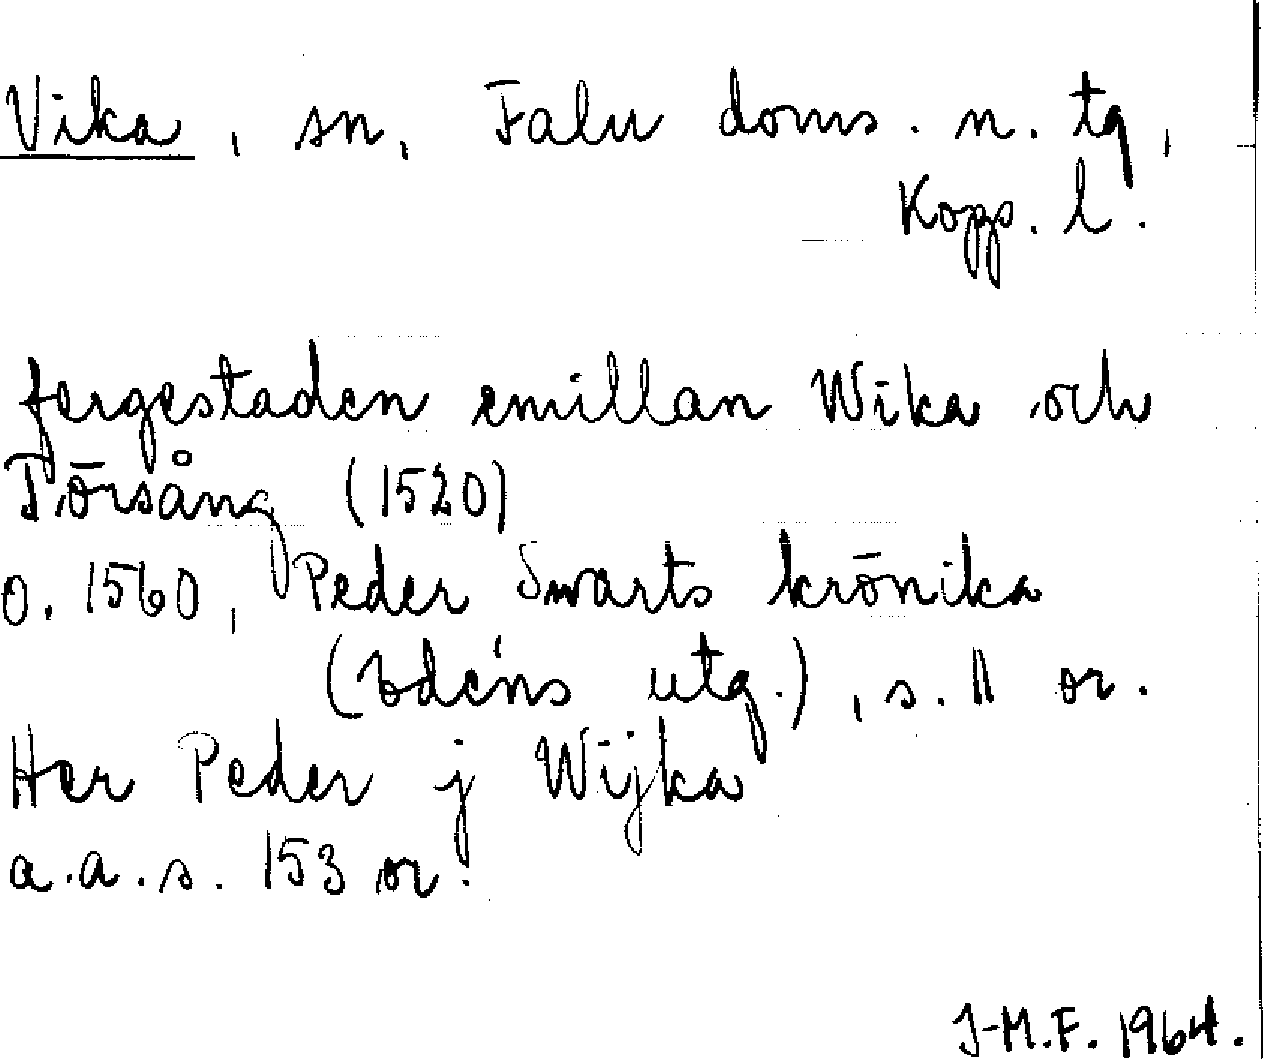 Vika, sn, Falu doms. n. tg,
Kopp. l.
fergestaden emillan Wika och
Törsång (1520)
o. 1560, Peder Swarts krönika
(Edéns utg.), s. 11 or.
Her Peder j Wijka
a.a.s. 153 or.
J-M.F. 1964.